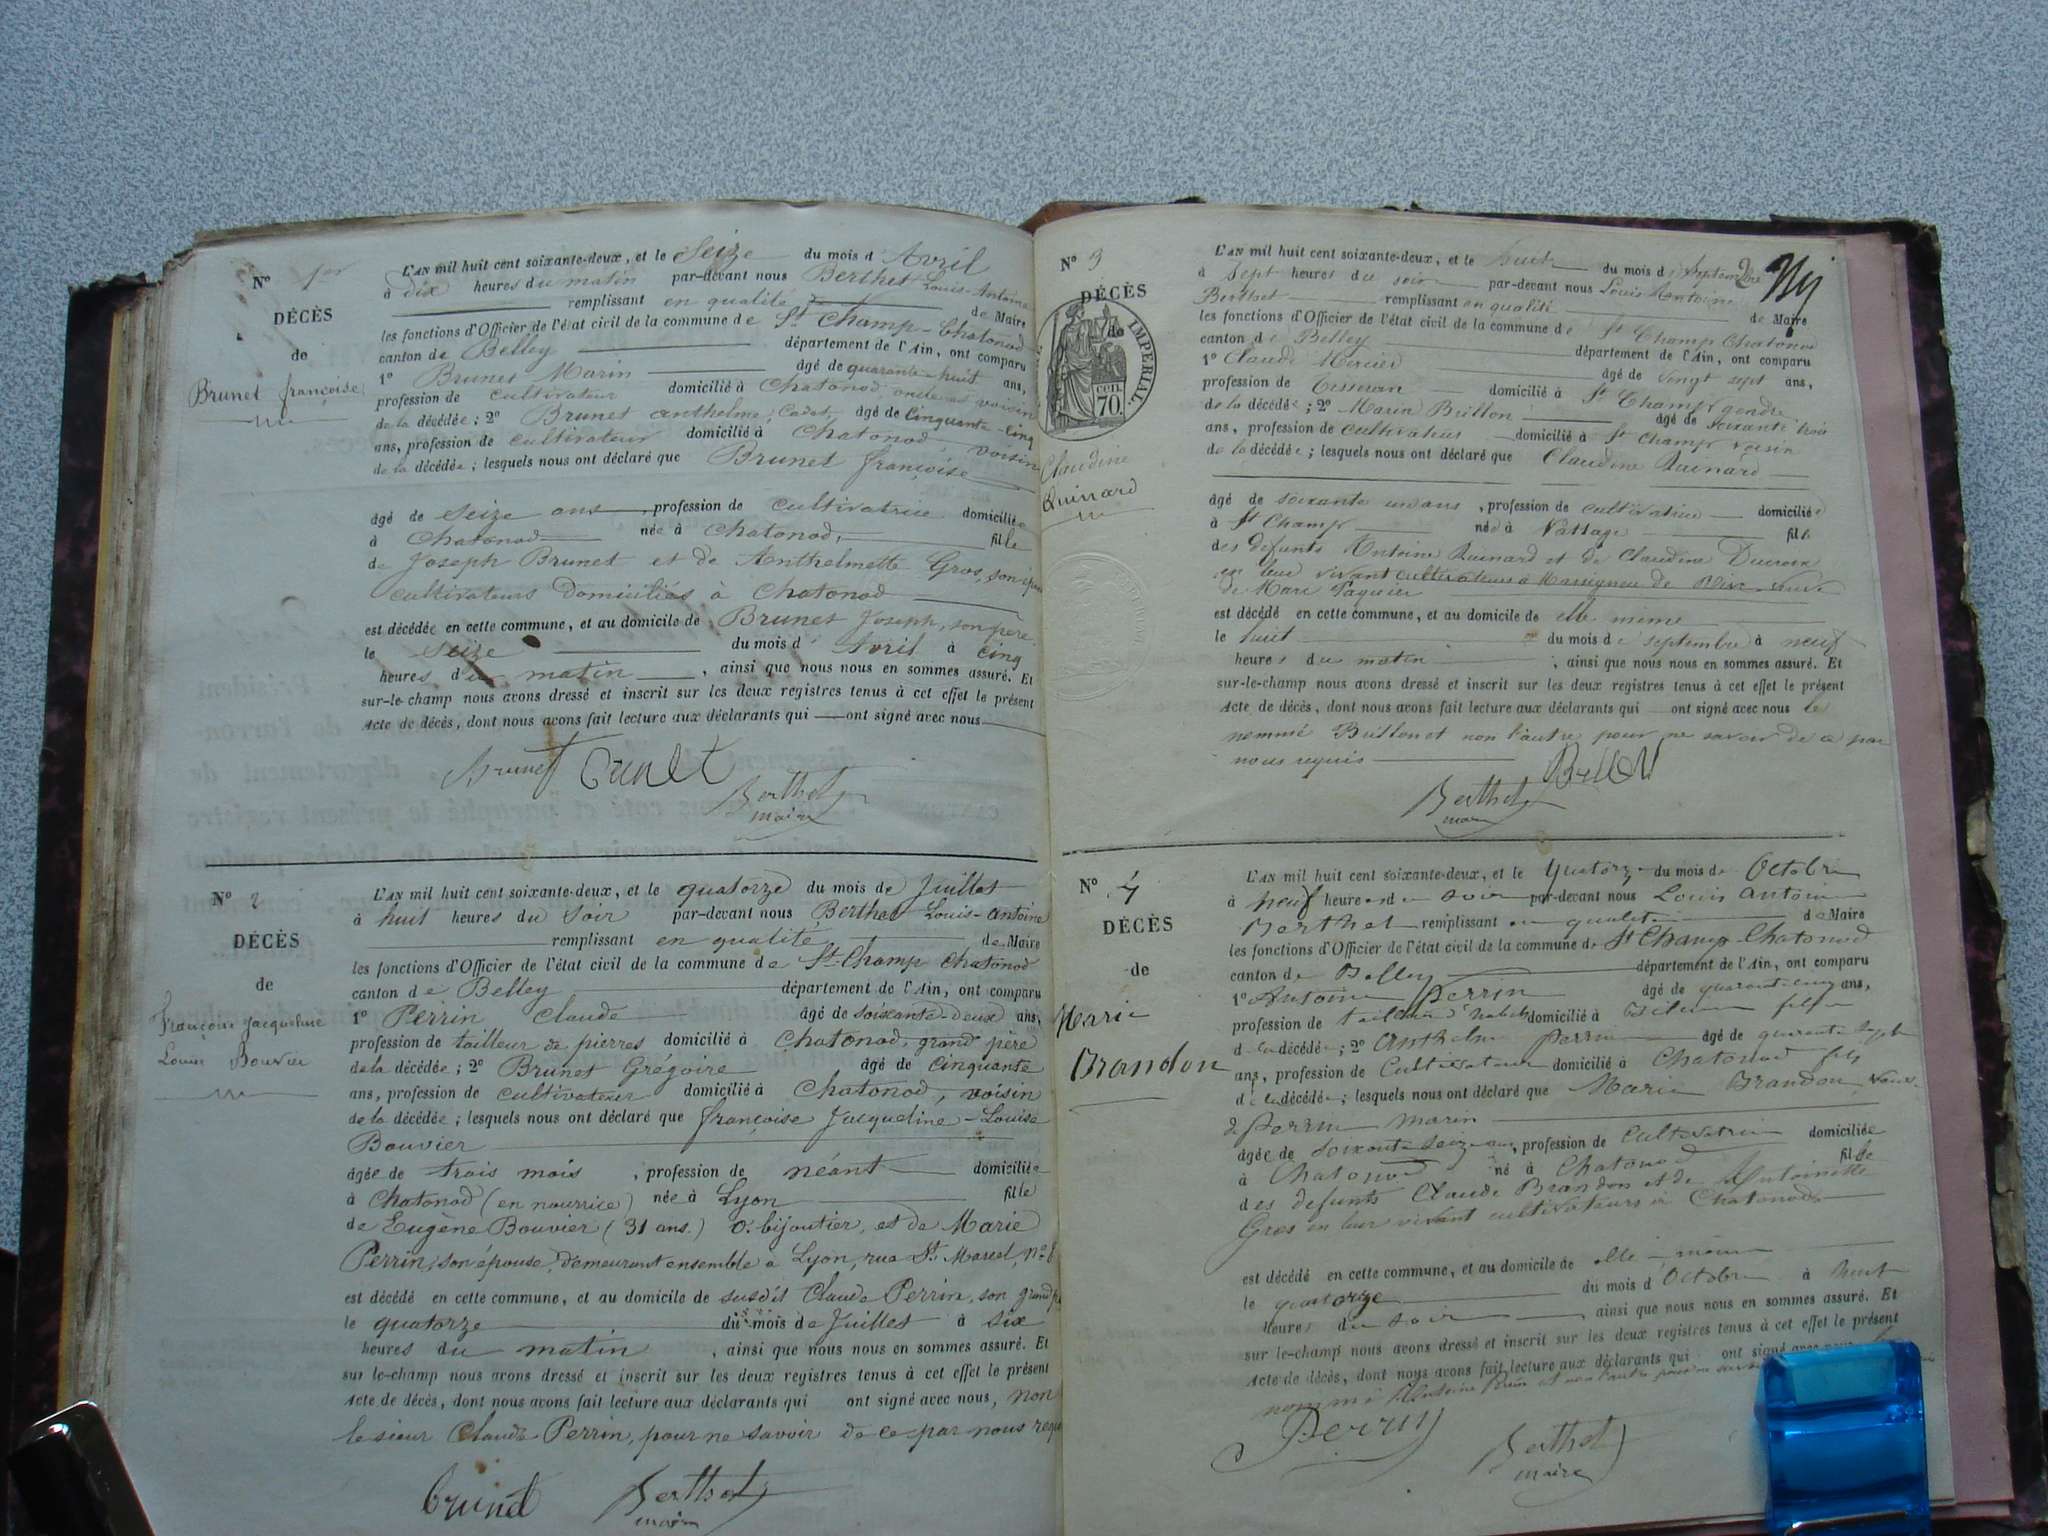 N° 1er
DÉCÈS
de
Brunet françoise
L'AN mil huit cent soixante-deux, et le Seize du mois d'Avril
à dix heures du matin par-devant nous Berthet Louis-Antoine
remplissant en qualité de Maire
les fonctions d'Officier de l'état civil de la commune de St Champ-Chatonod
canton de Belley département de l'Ain, ont comparu
1° Brunet Marin âgé de quarante-huit ans,
profession de cultivateur domicilié à Chatonod, oncle et voisin
de la décédée; 2° Brunet anthelme, Cadet, âgé de Cinquante-cinq
ans, profession de cultivateur domicilié à Chatonod, voisin
de la décédée; lesquels nous ont déclaré que Brunet françoise
âgé de seize ans, profession de cultivatrice domiciliée
à Chatonod née à Chatonod, fille
de Joseph Brunet et de Anthelmette Gros, son
cultivateurs domiciliés à Chatonod
est décédée en cette commune, et au domicile de Brunet Joseph, son père
le seize du mois d'Avril à cinq
heures du matin, ainsi que nous nous en sommes assuré. Et
sur-le-champ nous avons dressé et inscrit sur les deux registres tenus à cet effet le présent
Acte de décès, dont nous avons fait lecture aux déclarants qui ont signé avec nous
Brunet Brunet
Berthet
maire
N° 2
DÉCÈS
de
Françoise Jacqueline
Louise Bouvier
L'AN mil huit cent soixante-deux, et le quatorze du mois de Juillet
à huit heures du soir par-devant nous Berthet Louis-antoine
remplissant en qualité de Maire
les fonctions d'Officier de l'état civil de la commune de St-Champ Chatonod
canton de Belley département de l'Ain, ont comparu
1° Perrin Claude âgé de soixante-deux ans,
profession de tailleur de pierres domicilié à Chatonod, grand père
de la décédée; 2° Brunet Grégoire âgé de cinquante
ans, profession de cultivateur domicilié à Chatonod, voisin
de la décédée; lesquels nous ont déclaré que françoise Jacqueline-Louise
Bouvier
âgée de trois mois, profession de néant domiciliée
à Chatonod (en nourrice) née à Lyon fille
de Eugène Bouvier (31 ans.) O. bijoutier, et de Marie
Perrin, son épouse, demeurant ensemble a Lyon, rue St. Marcel, n° 8
est décédé en cette commune, et au domicile de susdit Claude Perrin, son grand
le quatorze du mois de Juillet à six
heures du matin, ainsi que nous nous en sommes assuré. Et
sur le-champ nous avons dressé et inscrit sur les deux registres tenus à cet effet le présent
Acte de décès, dont nous avons fait lecture aux déclarants qui ont signé avec nous, non
le sieur Claude Perrin, pour ne savoir de ce par nous
brunet Berthet
maire
N° 3
DÉCÈS
de
IMPERIAL.
70 cen
Claudine
Quinard
L'AN mil huit cent soixante-deux, et le huit du mois de septembre
à sept heures du soir par-devant nous Louis Antoine
Berthet remplissant en qualité de Maire
les fonctions d'Officier de l'état civil de la commune de St Champ Chatonod
canton de Belley département de l'Ain, ont comparu
1° Claude Mercier âgé de vingt sept ans,
profession de tisseran domicilié à St Champ gendre
de la décédée; 2° Marin Brillon âgé de soixante trois
ans, profession de cultivateur domicilié à St Champ voisin
de la décédée; lesquels nous ont déclaré que Claudine Quinard
âgé de soixante un ans, profession de cultivatrice domiciliée
à St Champ née à Nattage fille
des défunts Antoine Quinard et de Claudine Ducroix
en leur vivant cultivateurs à Massignieu de Rive veuve
de Marc Paquier
est décédé en cette commune, et au domicile de elle même
le huit du mois de septembre à neuf
heures du matin, ainsi que nous nous en sommes assuré. Et
sur-le-champ nous avons dressé et inscrit sur les deux registres tenus à cet effet le présent
Acte de décès, dont nous avons fait lecture aux déclarants qui ont signé avec nous le
nommé Brillon et non l'autre pour ne savoir de ce par
nous requis
Berthet
maire
N° 4
DÉCÈS
de
Marie
Brandon
L'AN mil huit cent soixante-deux, et le Quatorze du mois de Octobre
à neuf heures du soir par-devant nous Louis antoine
Berthet remplissant en qualité de Maire
les fonctions d'Officier de l'état civil de la commune de St Champ-Chatonod
canton de Belley département de l'Ain, ont comparu
1° Antoine Perrin âgé de quarante cinq ans,
profession de tailleur d'habits domicilié à fils
de la décédée; 2° Anthelme Perrin âgé de quarante sept
ans, profession de Cultivateur domicilié à Chatonod fils
de la décédée; lesquels nous ont déclaré que Marie Brandon veuve
de Perrin marin
âgée de soixante seize ans, profession de cultivatrice domiciliée
à Chatonod né à Chatonod fille
des défunts Claude Brandon et de Antoinette
Gros en leur vivant cultivateurs à Chatonod
est décédé en cette commune, et au domicile de elle même
le quatorze du mois d'Octobre à huit
heures du soir, ainsi que nous nous en sommes assuré. Et
sur le-champ nous avons dressé et inscrit sur les deux registres tenus à cet effet le présent
Acte de décès, dont nous avons fait lecture aux déclarants qui ont signé avec
nommé Antoine Perrin et non l'autre pour ne savoir
Perrin Berthet
maire